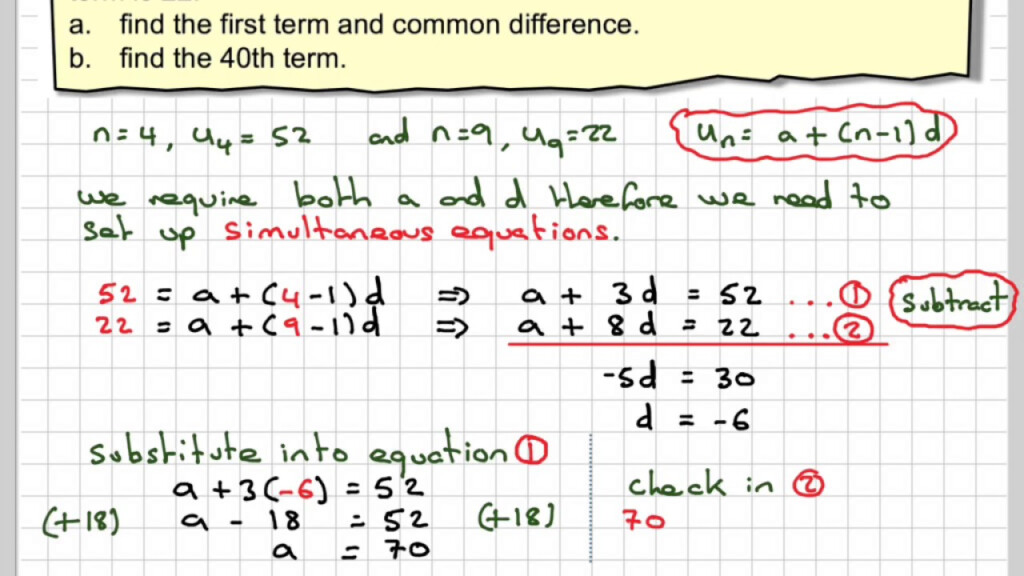 a. find the first term and common difference.
b. find the 40th term.
n=4, u₄ = 52 and n=9, u₉=22 uₙ= a+(n-1)d
we require both a and d therefore we need to
set up simultaneous equations.
52 = a+(4-1)d ⇒ a + 3d = 52 ...① subtract
22 = a+(9-1)d ⇒ a + 8d = 22 ...②
-5d = 30
d = -6
substitute into equation ①
a +3(-6) = 52
(+18) a - 18 = 52 (+18)
a = 70
check in ②
70